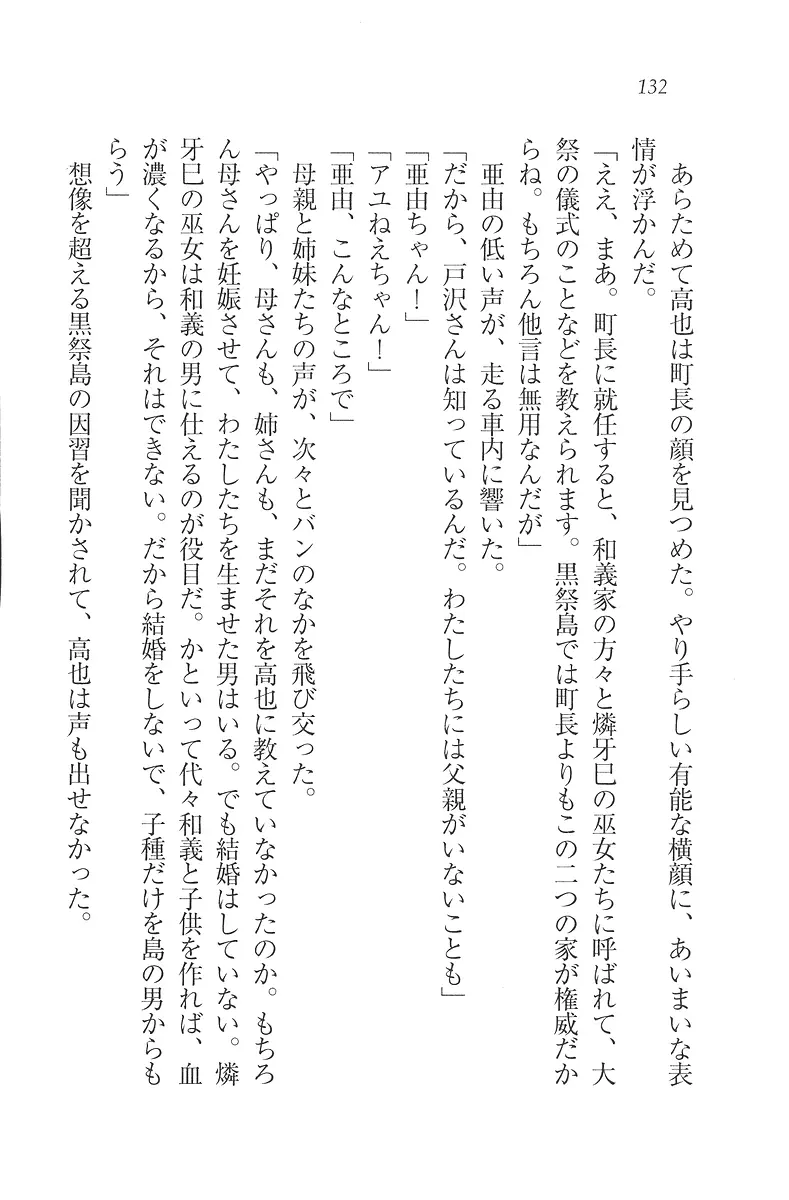 132
　あらためて高也は町長の顔を見つめた。やり手らしい有能な横顔に、あいまいな表
情が浮かんだ。
「ええ、まあ。町長に就任すると、和義家の方々と燐牙巳の巫女たちに呼ばれて、大
祭の儀式のことなどを教えられます。黒祭島では町長よりもこの二つの家が権威だか
らね。もちろん他言は無用なんだが」
　亜由の低い声が、走る車内に響いた。
「だから、戸沢さんは知っているんだ。わたしたちには父親がいないことも」
「亜由ちゃん！」
「アユねえちゃん！」
「亜由、こんなところで」
　母親と姉妹たちの声が、次々とバンのなかを飛び交った。
「やっぱり、母さんも、姉さんも、まだそれを高也に教えていなかったのか。もちろ
ん母さんを妊娠させて、わたしたちを生ませた男はいる。でも結婚はしていない。燐
牙巳の巫女は和義の男に仕えるのが役目だ。かといって代々和義と子供を作れば、血
が濃くなるから、それはできない。だから結婚をしないで、子種だけを島の男からも
らう」
　想像を超える黒祭島の因習を聞かされて、高也は声も出せなかった。